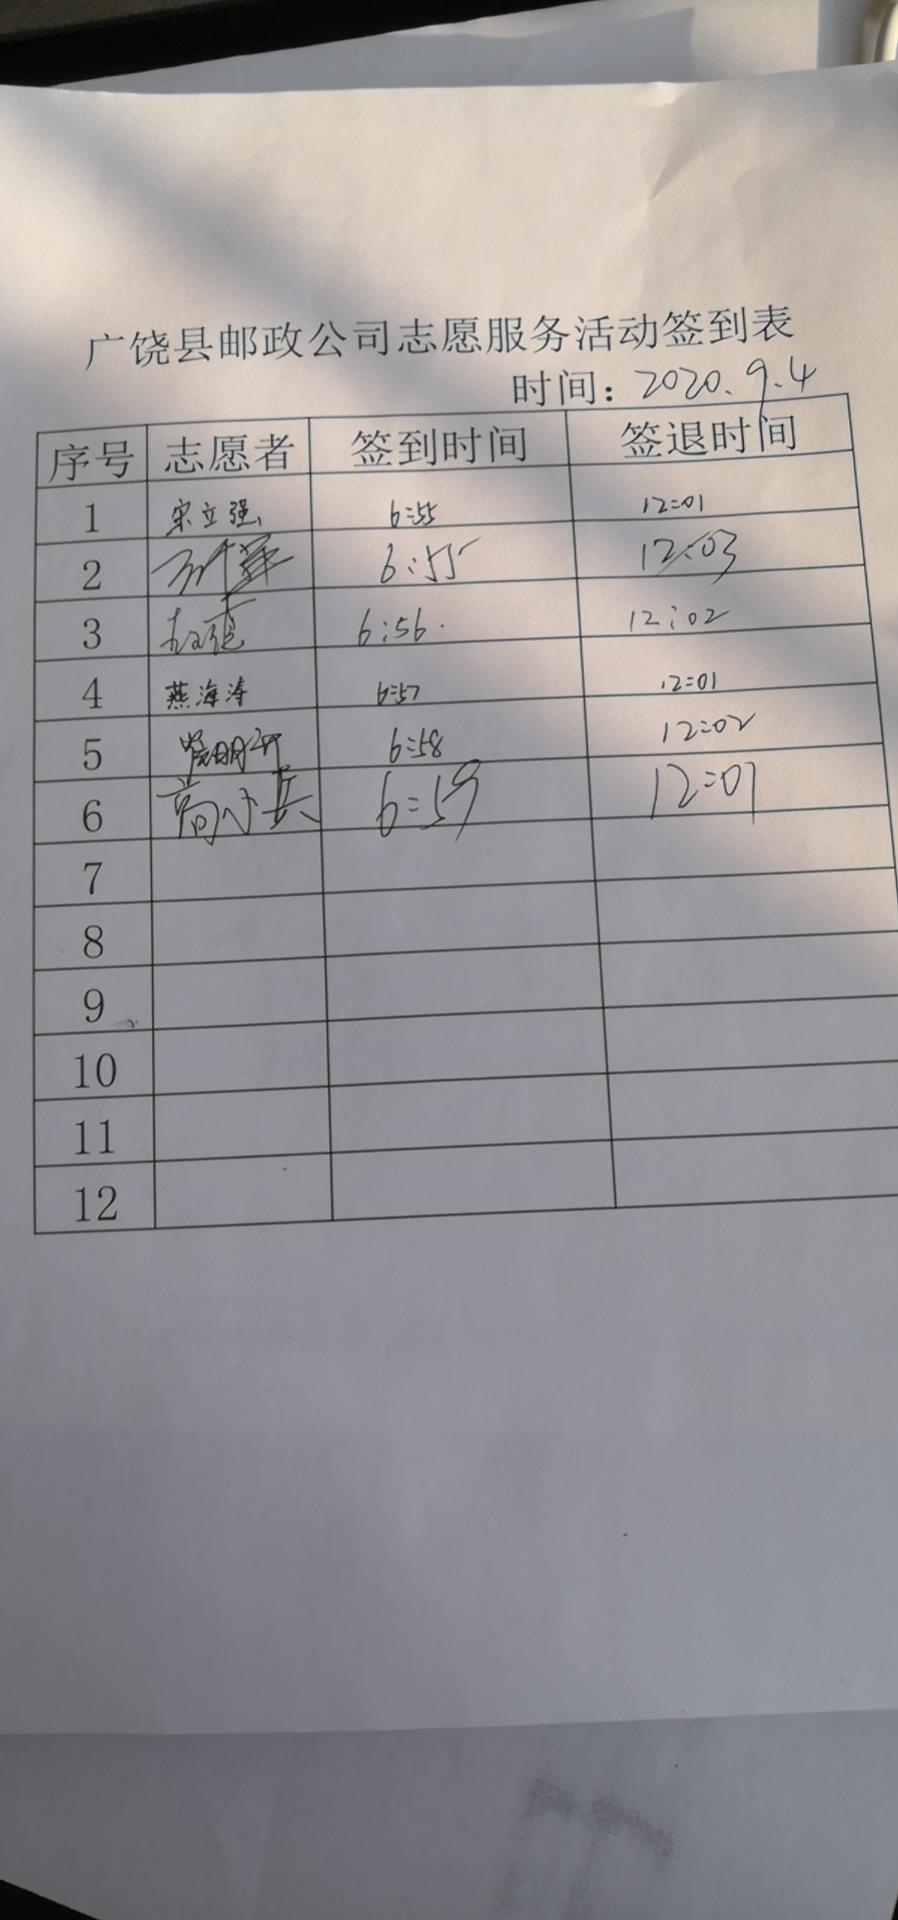 广饶县邮政公司志愿服务活动签到表
时间：2020.9.4
序号 志愿者 签到时间 签退时间
1 宋立强 6:55 12:01
2 6:55 12:03
3 6:56 12:02
4 燕海涛 6:57 12:01
5 6:58 12:02
6 高小兵 6:59 12:01
7
8
9
10
11
12